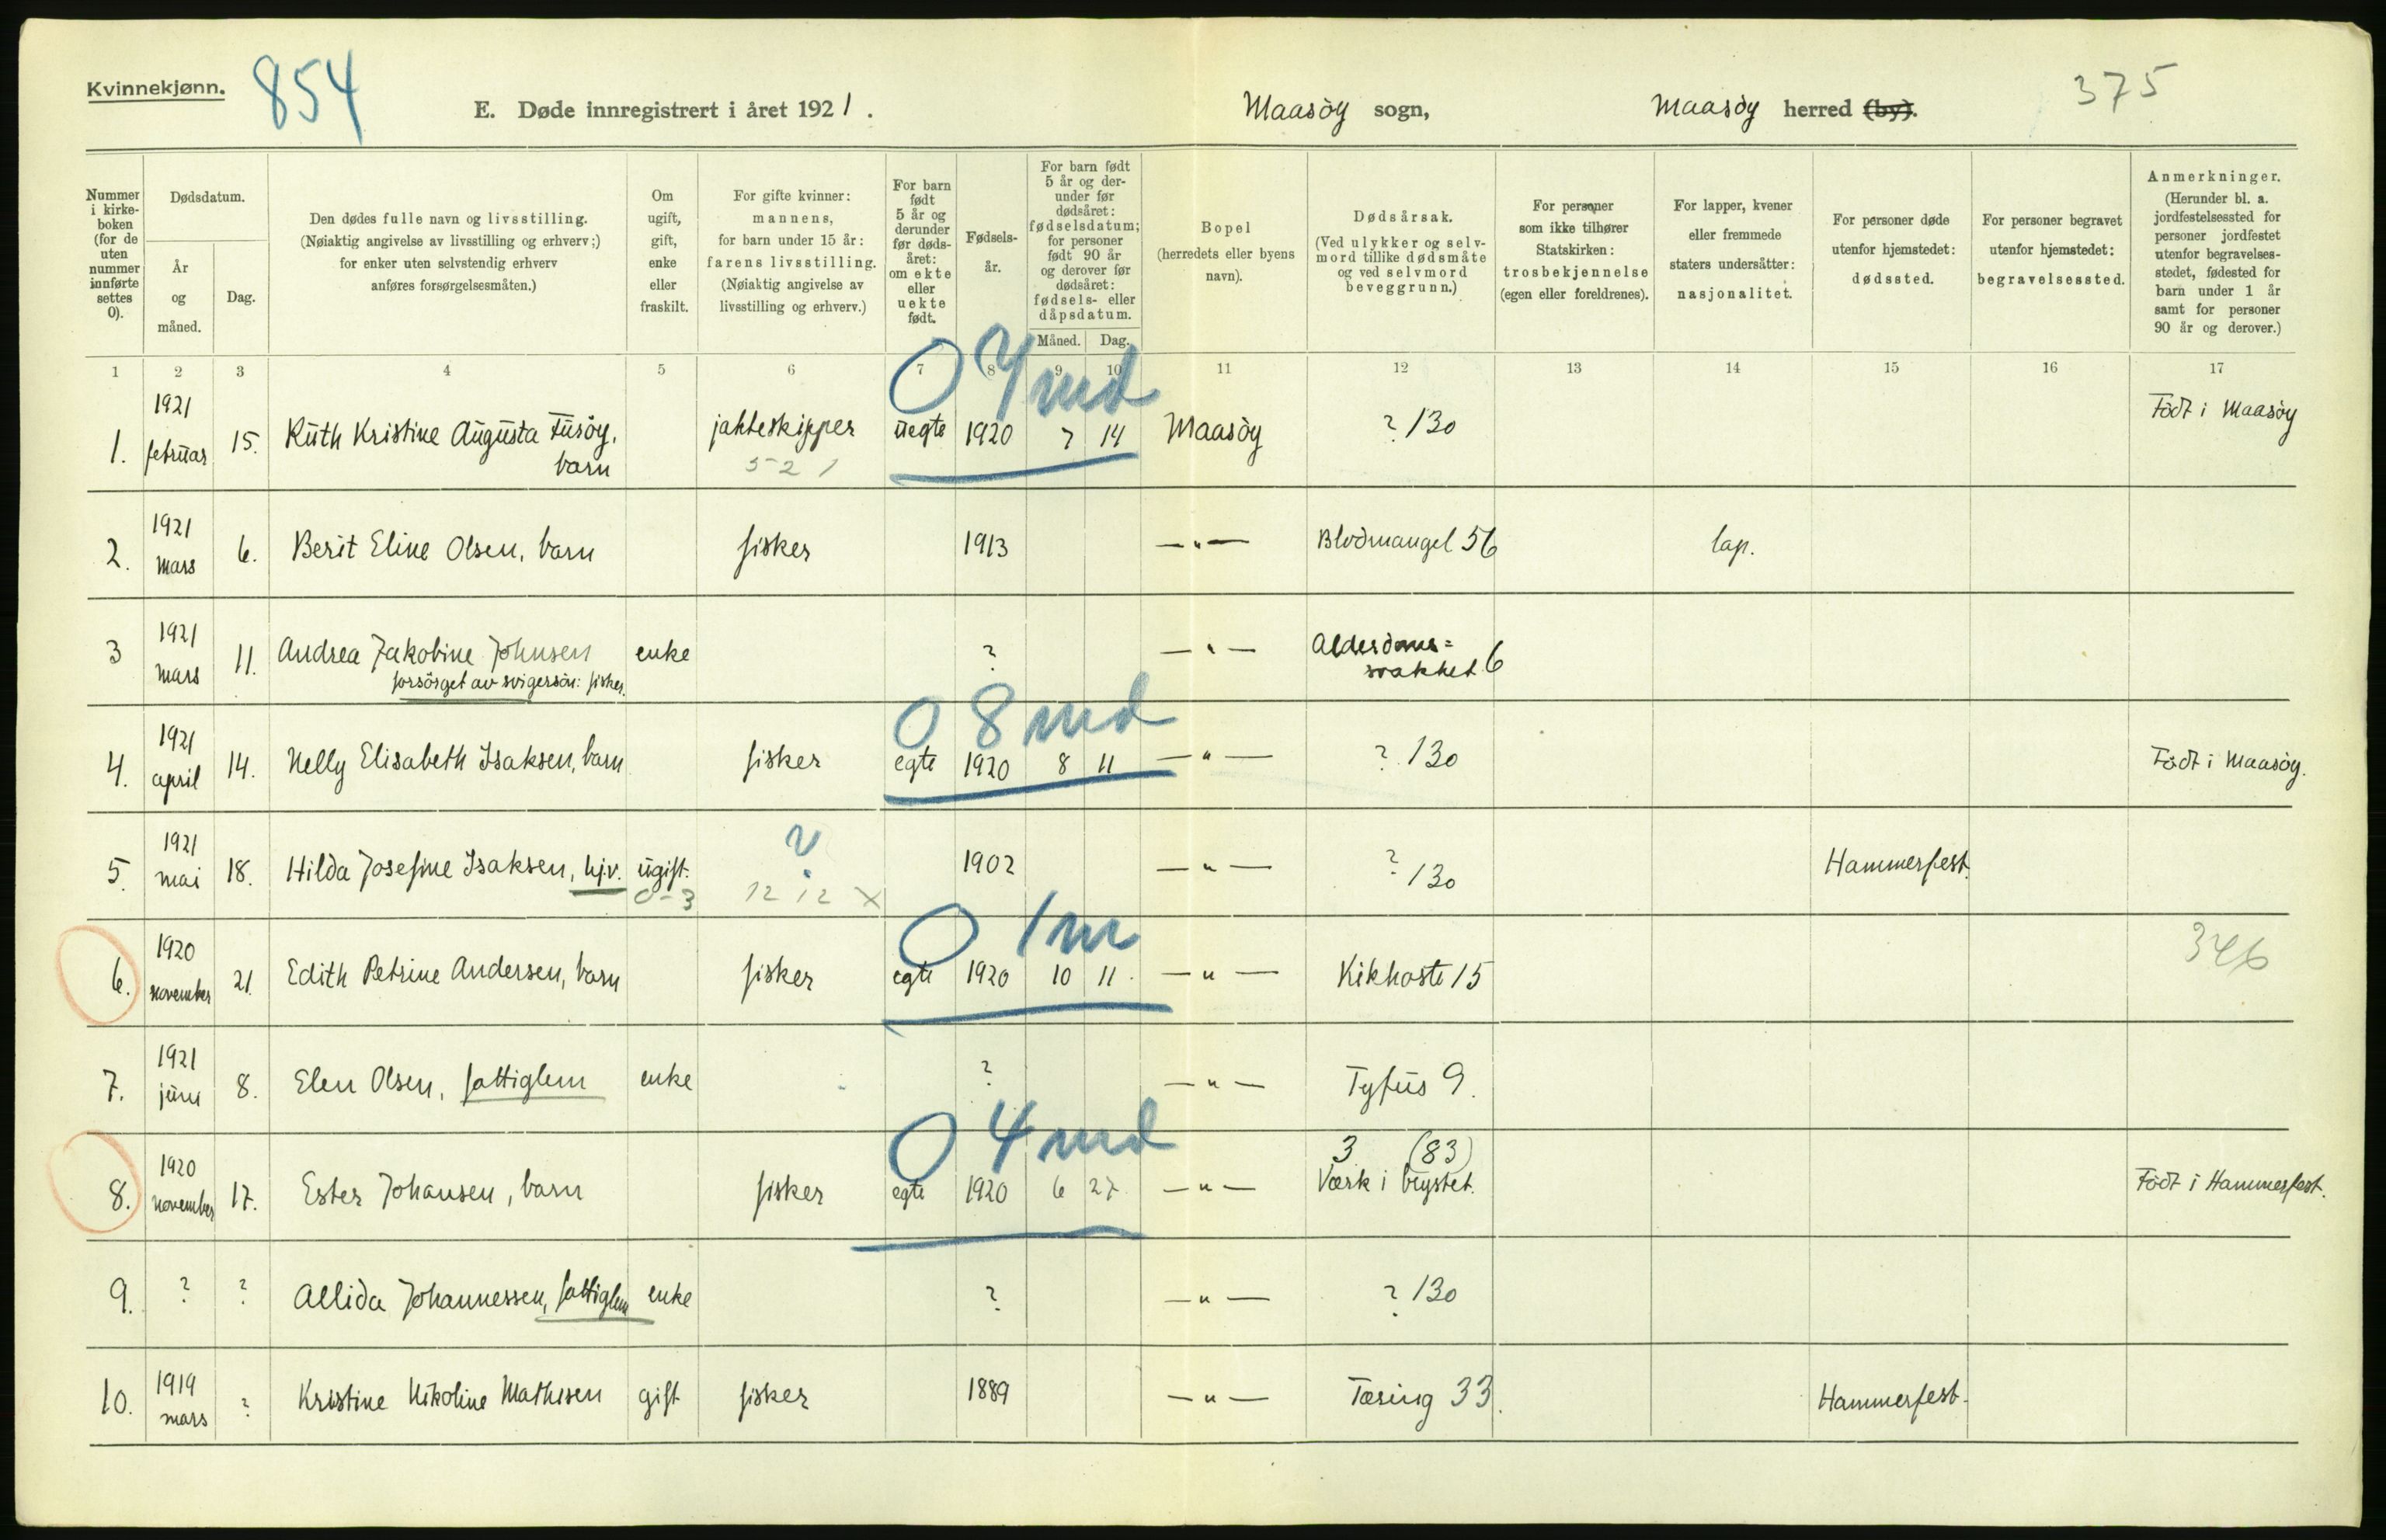 Kvinnekjønn.
854
E. Døde innregistrert i året 1921.
Maasøy sogn,
Maasøy herred (by).
375
Nummer i kirke-boken (for de uten nummer innførte settes 0).
Dødsdatum.
År og måned.
Dag.
Den dødes fulle navn og livsstilling.
(Nøiaktig angivelse av livsstilling og erhverv;)
for enker uten selvstendig erhverv
anføres forsørgelsesmåten.)
Om ugift, gift, enke eller fraskilt.
For gifte kvinner:
mannens,
for barn under 15 år:
farens livsstilling.
(Nøiaktig angivelse av
livsstilling og erhverv.)
For barn født 5 år og derunder før døds-året: om ekte eller uekte født.
Fødsels-år.
For barn født 5 år og der-under før dødsåret: fødselsdatum; for personer født 90 år og derover før dødsåret: fødsels- eller dåpsdatum.
Måned.
Dag.
Bopel
(herredets eller byens navn).
Dødsårsak.
(Ved ulykker og selv-mord tillike dødsmåte og ved selvmord beveggrunn.)
For personer som ikke tilhører Statskirken: trosbekjennelse (egen eller foreldrenes).
For lapper, kvener eller fremmede staters undersåtter: nasjonalitet.
For personer døde utenfor hjemstedet: dødssted.
For personer begravet utenfor hjemstedet: begravelsessted.
Anmerkninger.
(Herunder bl. a. jordfestelsessted for personer jordfestet utenfor begravelses-stedet, fødested for barn under 1 år samt for personer 90 år og derover.)
1 2 3 4 5 6 7 8 9 10 11 12 13 14 15 16 17
0 7 md
1. 1921 februar 15. Ruth Kristine Augusta Fusøy, barn jakteskipper uegte 1920 7 14 Maasøy ? 130 Født i Maasøy
5 2 1
2. 1921 mars 6. Berit Eline Olsen, barn fisker 1913 —"— Blodmangel 56 lap.
3 1921 mars 11. Andrea Jakobine Johnsen enke ? —"— Alderdoms=
forsørget av svigersøn: fisker. svakhet 6
0 8 md
4. 1921 april 14. Nelly Elisabeth Isaksen, barn fisker egte 1920 8 11 —"— ? 130 Født i Maasøy.
5. 1921 mai 18. Hilda Josefine Isaksen, hjv. ugift. ? 1902 —"— ? 130 Hammerfest.
0-3 12 12 X
0 1 m
6. 1920 november 21. Edith Petrine Andersen, barn fisker egte 1920 10 11. —"— Kikhoste 15 346
7. 1921 juni 8. Elen Olsen, fattiglem enke ? —"— Tyfus 9.
0 4 md
3 (83)
8. 1920 november 17. Ester Johansen, barn fisker egte 1920 6 27 —"— Værk i brystet. Født i Hammerfest.
9. ? ? Allida Johannessen, fattiglem enke ? —"— ? 130
10. 1919 mars ? Kristine Nikoline Mathisen gift fisker 1889 —"— Tæring 33. Hammerfest.